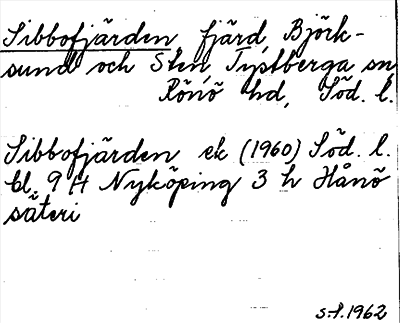 Sibbofjärden, fjärd, Björk-
sund och Sten, Tystberga sn,
Rönö hd, Söd. l.
Sibbofjärden ek (1960) Söd. l.
bl. 9 H Nyköping 3 h Hånö
säteri
s.f.1962